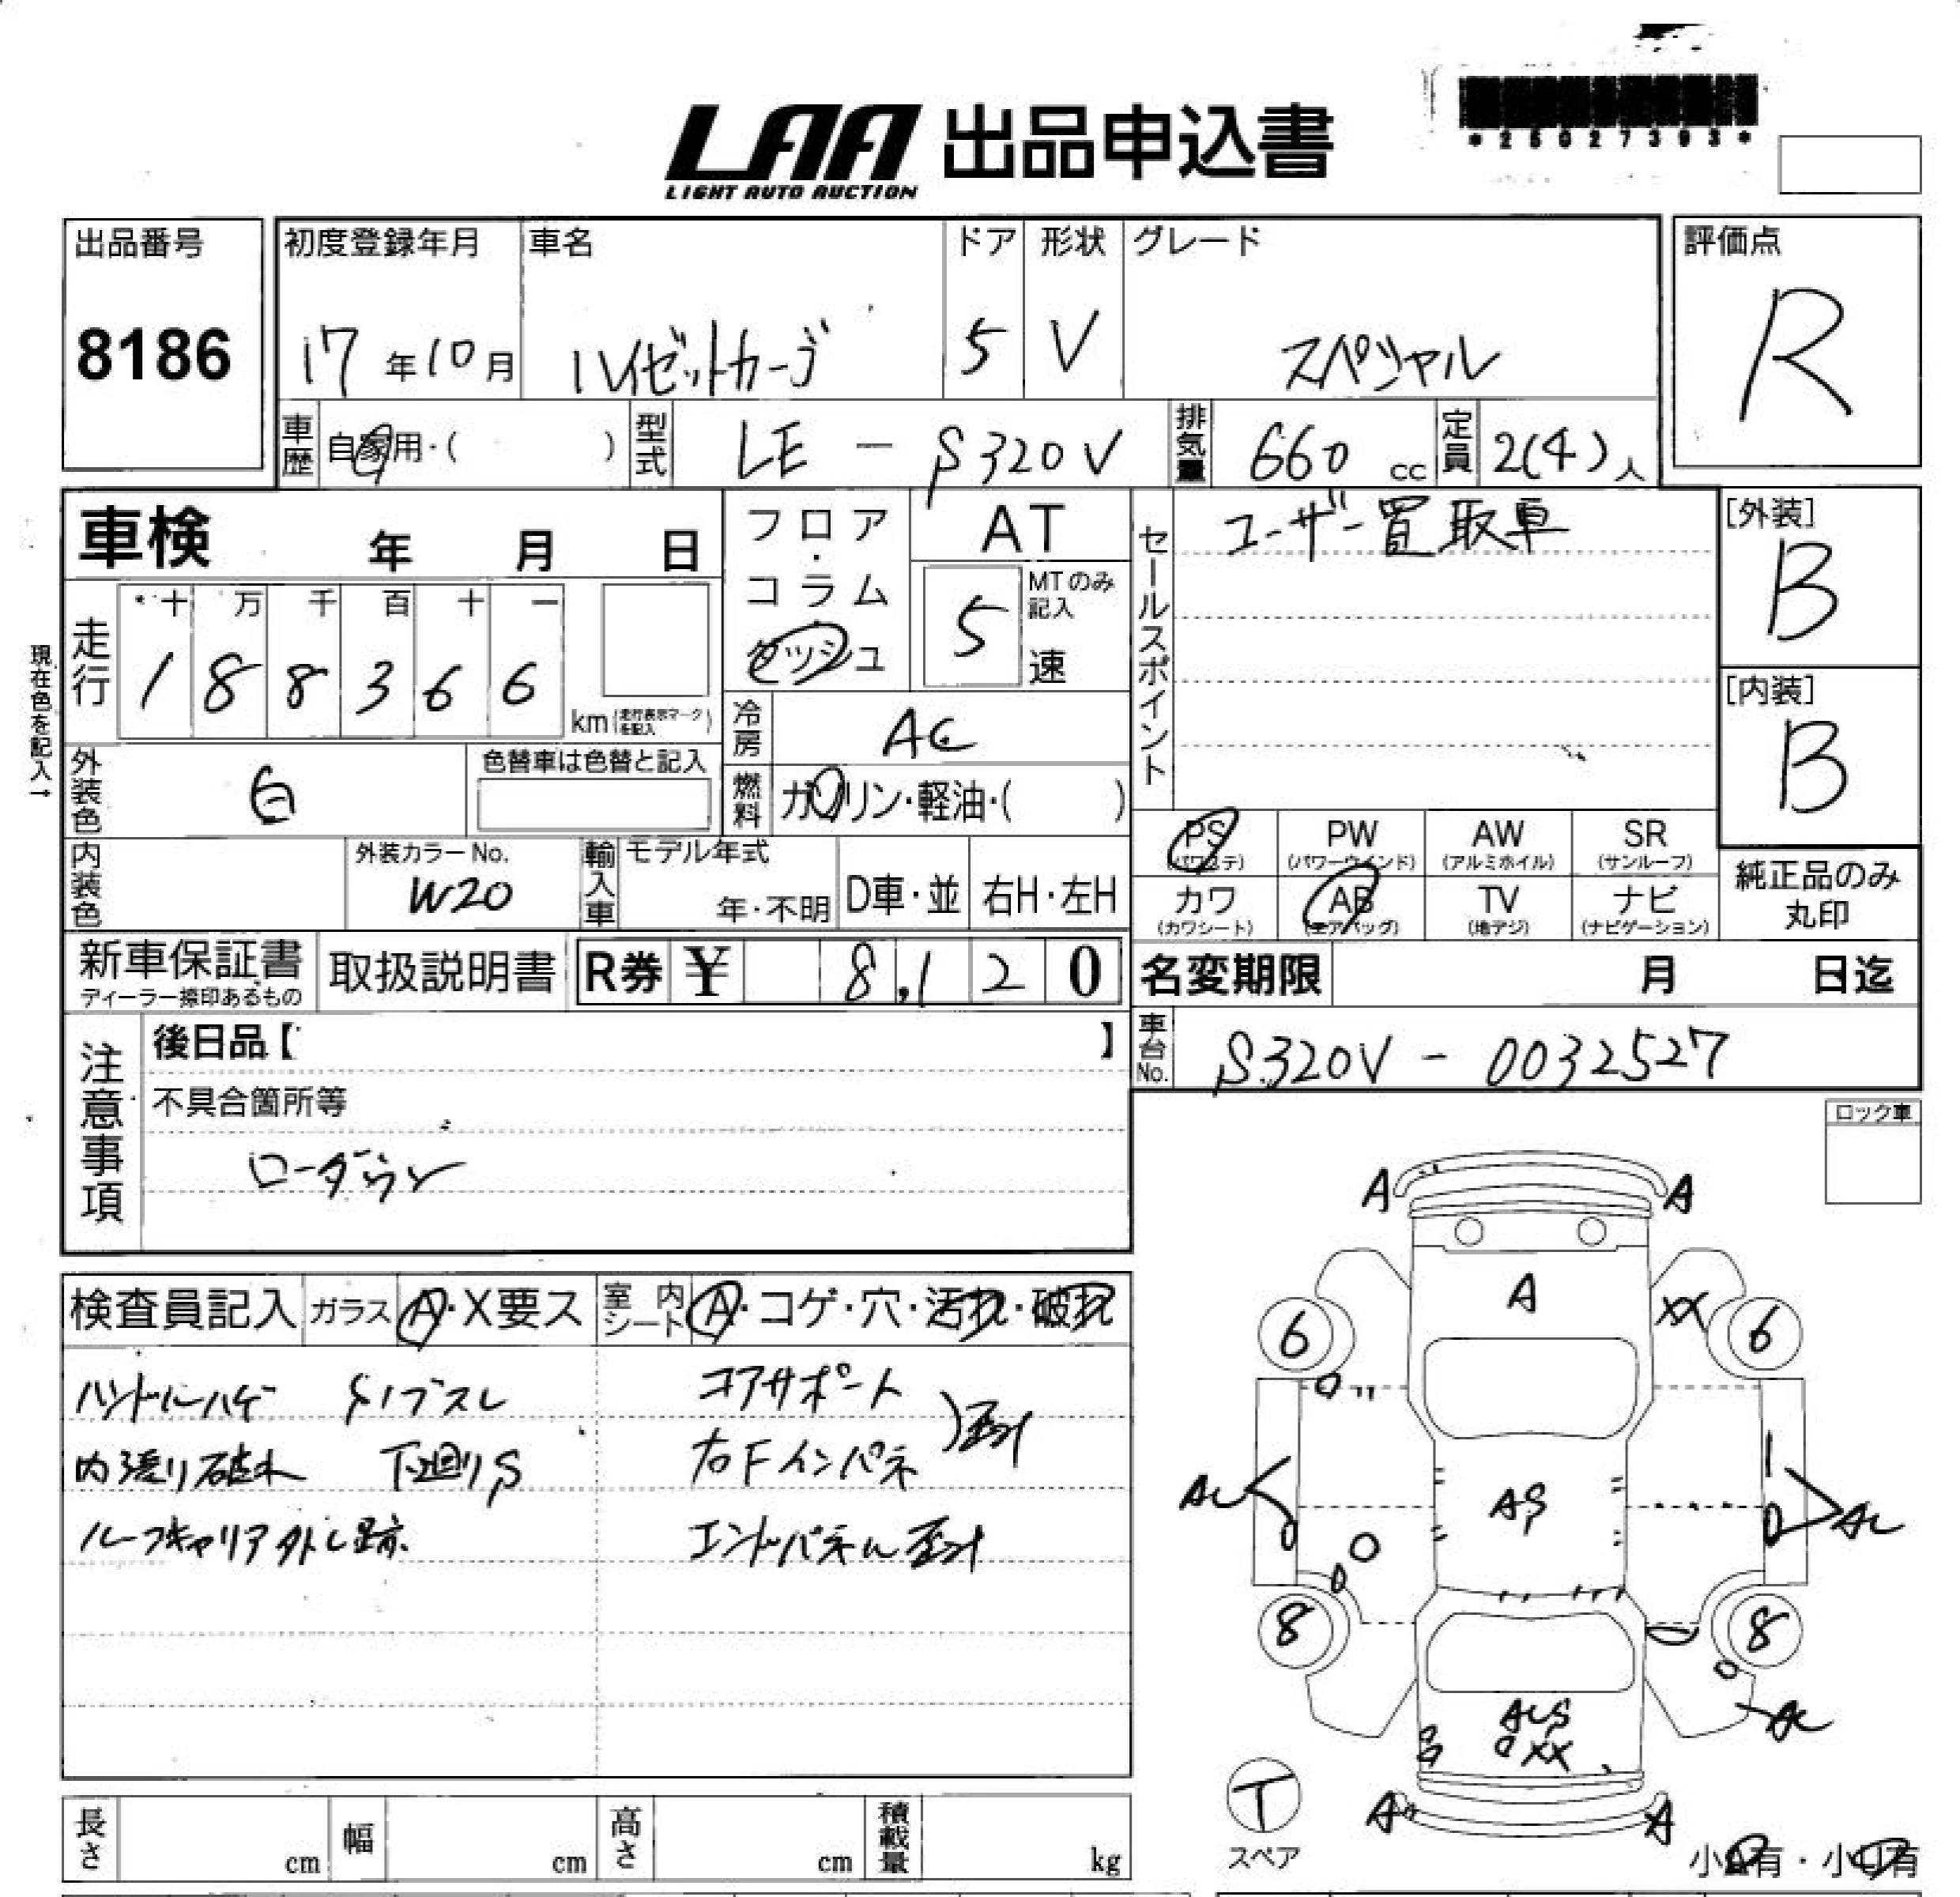 LAA 出品申込書
LIGHT AUTO AUCTION
*25027393*
出品番号
8186
初度登録年月
17年10月
車名
ハイゼットカーゴ
ドア
5
形状
V
グレード
スペシャル
評価点
R
車歴
自家用・( )
型式
LE - S320V
排気量
660 cc
定員
2(4)人
車検 年 月 日
走行
十 万 千 百 十 一
1 8 8 3 6 6
km(走行表示マークを記入)
現在色を記入→
外装色
白
色替車は色替と記入
内装色
外装カラーNo.
W20
輸入車
モデル年式
年・不明
D車・並
右H・左H
フロア・コラム・ダッシュ
AT
5
MTのみ記入
速
冷房
AC
燃料
ガソリン・軽油・( )
セールスポイント
ユーザー買取車
[外装]
B
[内装]
B
PS
(パワステ)
PW
(パワーウインド)
AW
(アルミホイル)
SR
(サンルーフ)
カワ
(カワシート)
AB
(エアバッグ)
TV
(地デジ)
ナビ
(ナビゲーション)
純正品のみ
丸印
新車保証書
ディーラー捺印あるもの
取扱説明書
R券 ¥ 8,120
名変期限 月 日迄
車台No.
S320V - 0032527
注意事項
後日品【 】
不具合箇所等
ローダウン
ロック車
検査員記入
ガラス
A・X要ス
室内シート
A・コゲ・穴・汚れ・破れ
ハンドルハゲ
内張り破れ 下廻りS
ルーフキャリア外し跡
コアサポート
右Fインパネ
エンドパネル
A A
A
XX
6 6
AS
8 8
XX
A A
T
スペア
小 有・小 有
長さ cm
幅 cm
高さ cm
積載量 kg